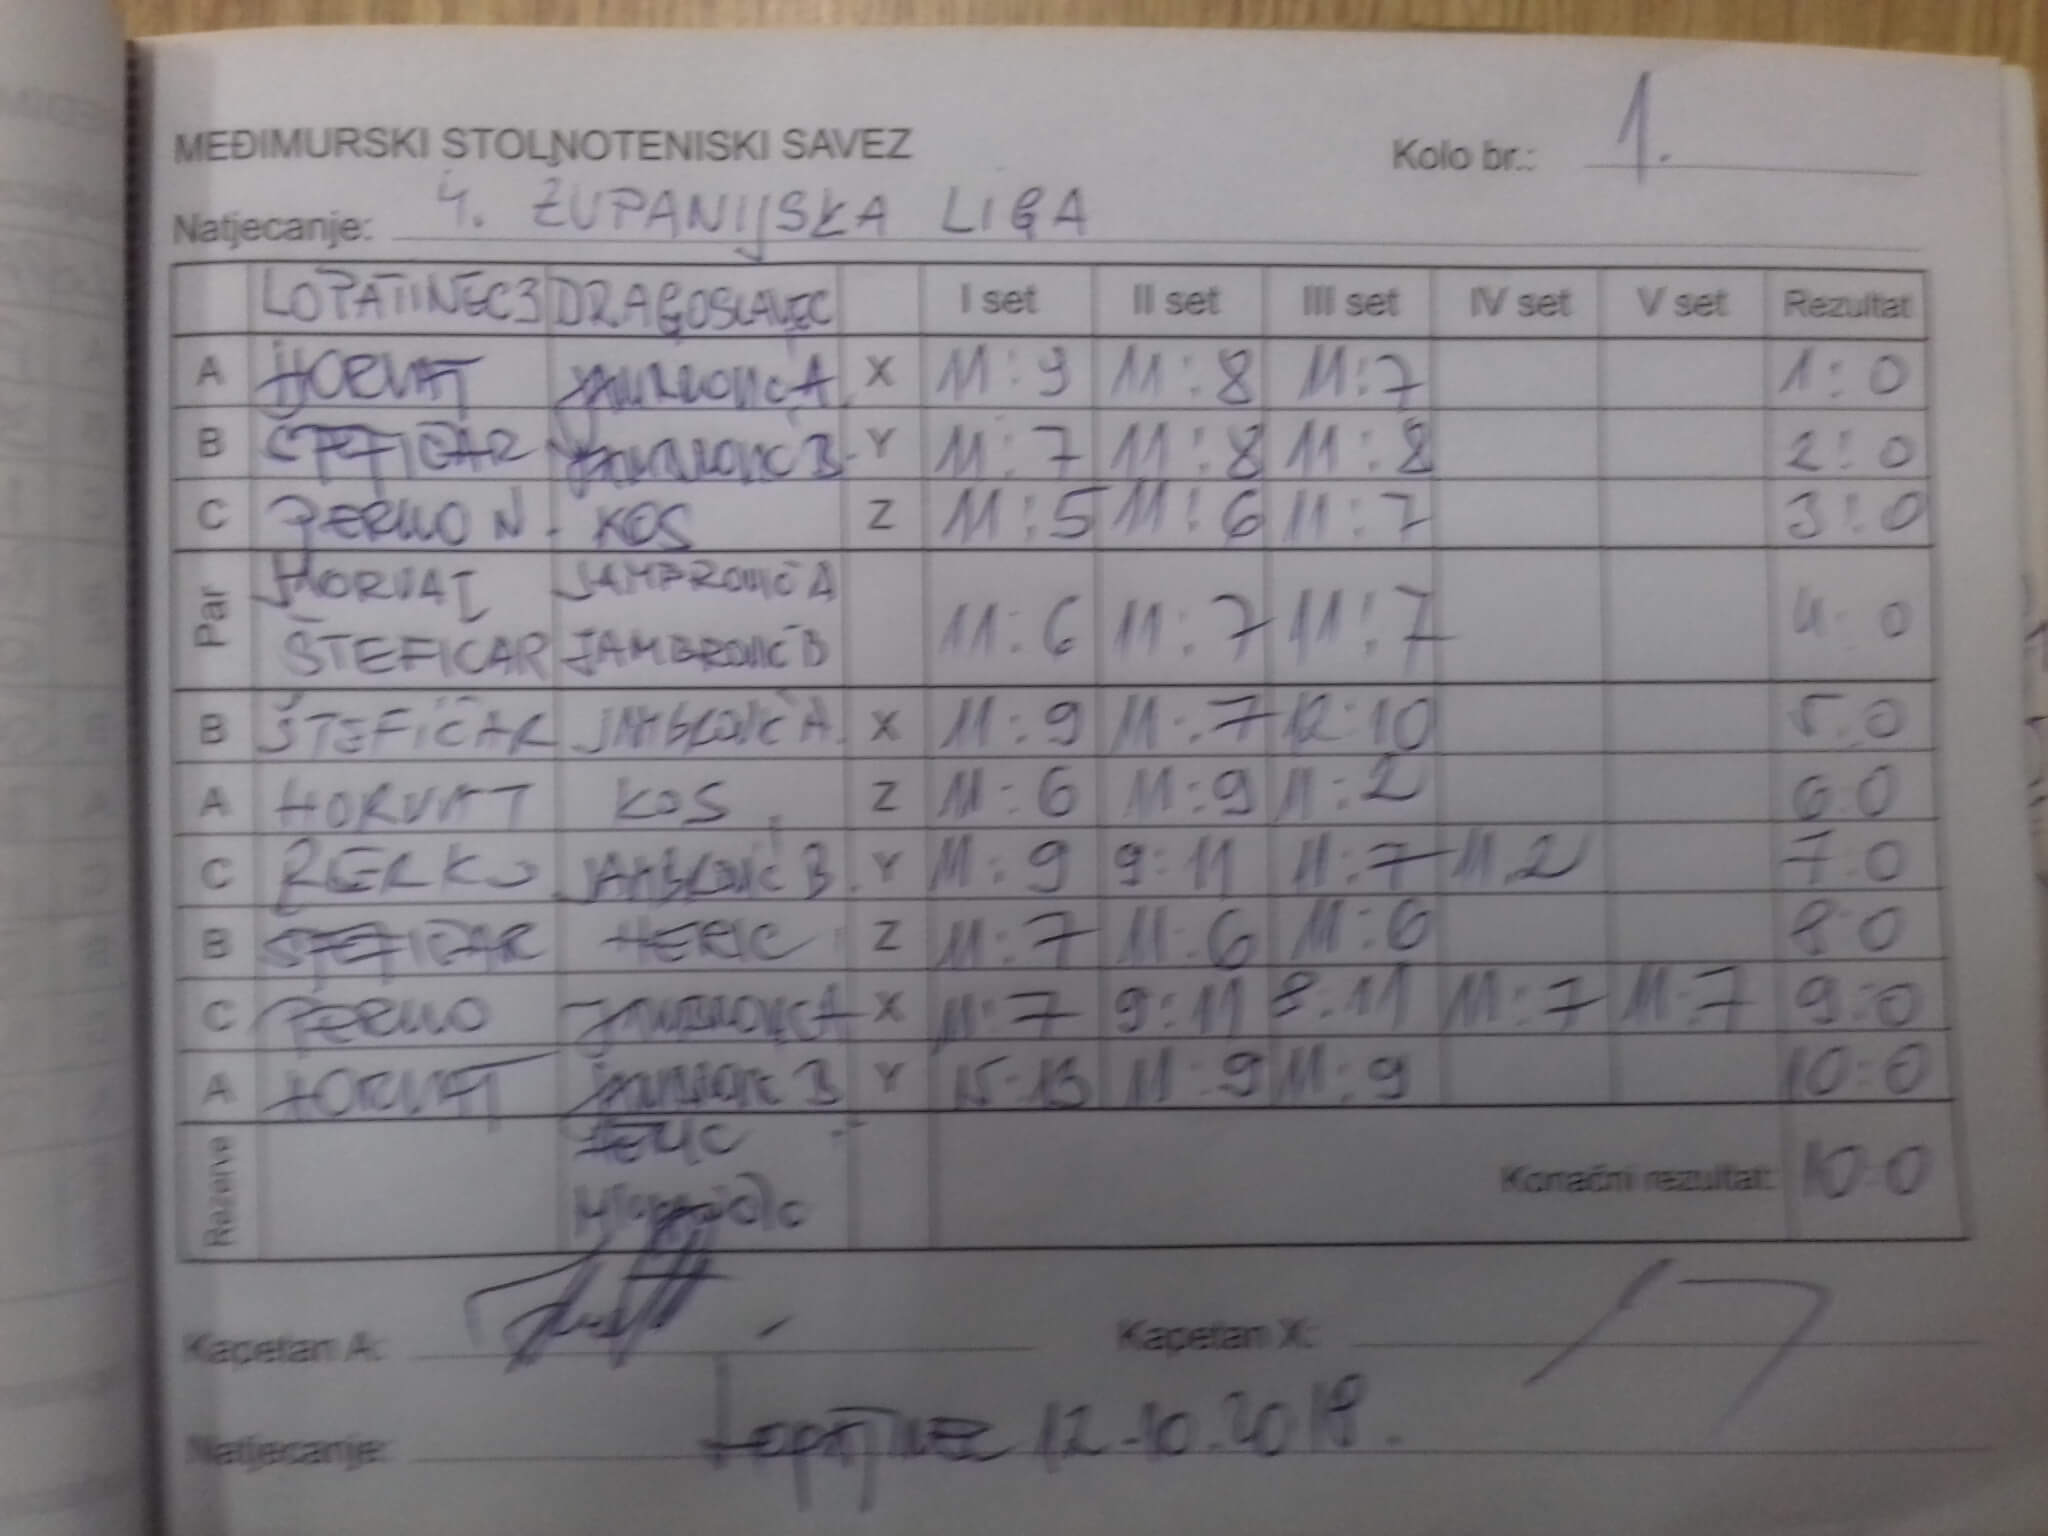 MEĐIMURSKI STOLNOTENISKI SAVEZ
Kolo br.: 1.
Natjecanje: 4. ŽUPANIJSKA LIGA
LOPATINEC 3 DRAGOSLAVEC I set II set III set IV set V set Rezultat
A HORVAT JAMBROVIĆ A. X 11:9 11:8 11:7 1:0
B ŠTEFIČAR JAMBROVIĆ B. Y 11:7 11:8 11:8 2:0
C N. KOS Z 11:5 11:6 11:7 3:0
Par HORVAT JAMBROVIĆ A 11:6 11:7 11:7 4:0
ŠTEFIČAR JAMBROVIĆ B
B ŠTEFIČAR JAMBROVIĆ A. X 11:9 11:7 12:10 5:0
A HORVAT KOS Z 11:6 11:9 11:2 6:0
C JAMBROVIĆ B. Y 11:9 9:11 11:7 11:2 7:0
B ŠTEFIČAR HERIC Z 11:7 11:6 11:6 8:0
C JAMBROVIĆ A X 11:7 9:11 8:11 11:7 11:7 9:0
A HORVAT JAMBROVIĆ B Y 15:13 11:9 11:9 10:0
Rezerve HERIC
Konačni rezultat: 10:0
Kapetan A:
Kapetan X:
Natjecanje: 12.10.2018.